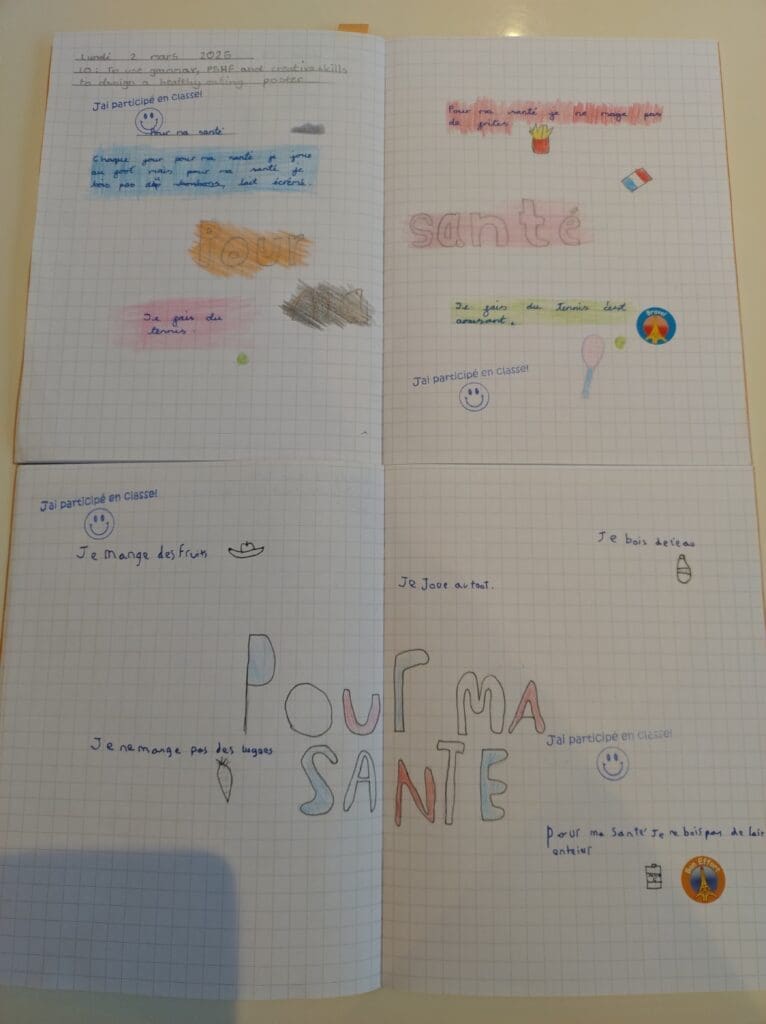 Lundi 2 mars 2025
LO: To use grammar, PSHE and creative skills
to design a healthy eating poster
J'ai participé en classe!
Pour ma santé
Chaque jour pour ma santé je joue
au foot mais pour ma santé je
bois pas bonbons, lait écrémé.
jour
ma
Je fais du
tennis.
Pour ma santé je ne mage pas
de frites
santé
Je fais du Tennis c'est
amusant.
Bravo!
J'ai participé en classe!
J'ai participé en classe!
Je mange des fruits
Je bois de l'eau
Je Joue au foot.
POUR MA
SANTE
Je ne mange pas des
J'ai participé en classe!
Pour ma santé Je ne bois pas de lait
enteier
Bon Effort